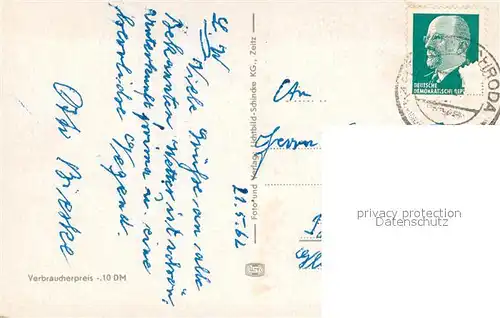 L. W.
Viele Grüße an alle
Bekannten, Wetter ist schön,
Unterkunft prima u. eine
herrliche Gegend.
Otto
21.5.62
Foto und Verlag Lichtbild-Schincke KG., Zeitz
An
Herrn
DEUTSCHE
DEMOKRATISCHE REP
RODA
privacy protection
Datenschutz
Verbraucherpreis -.10 DM